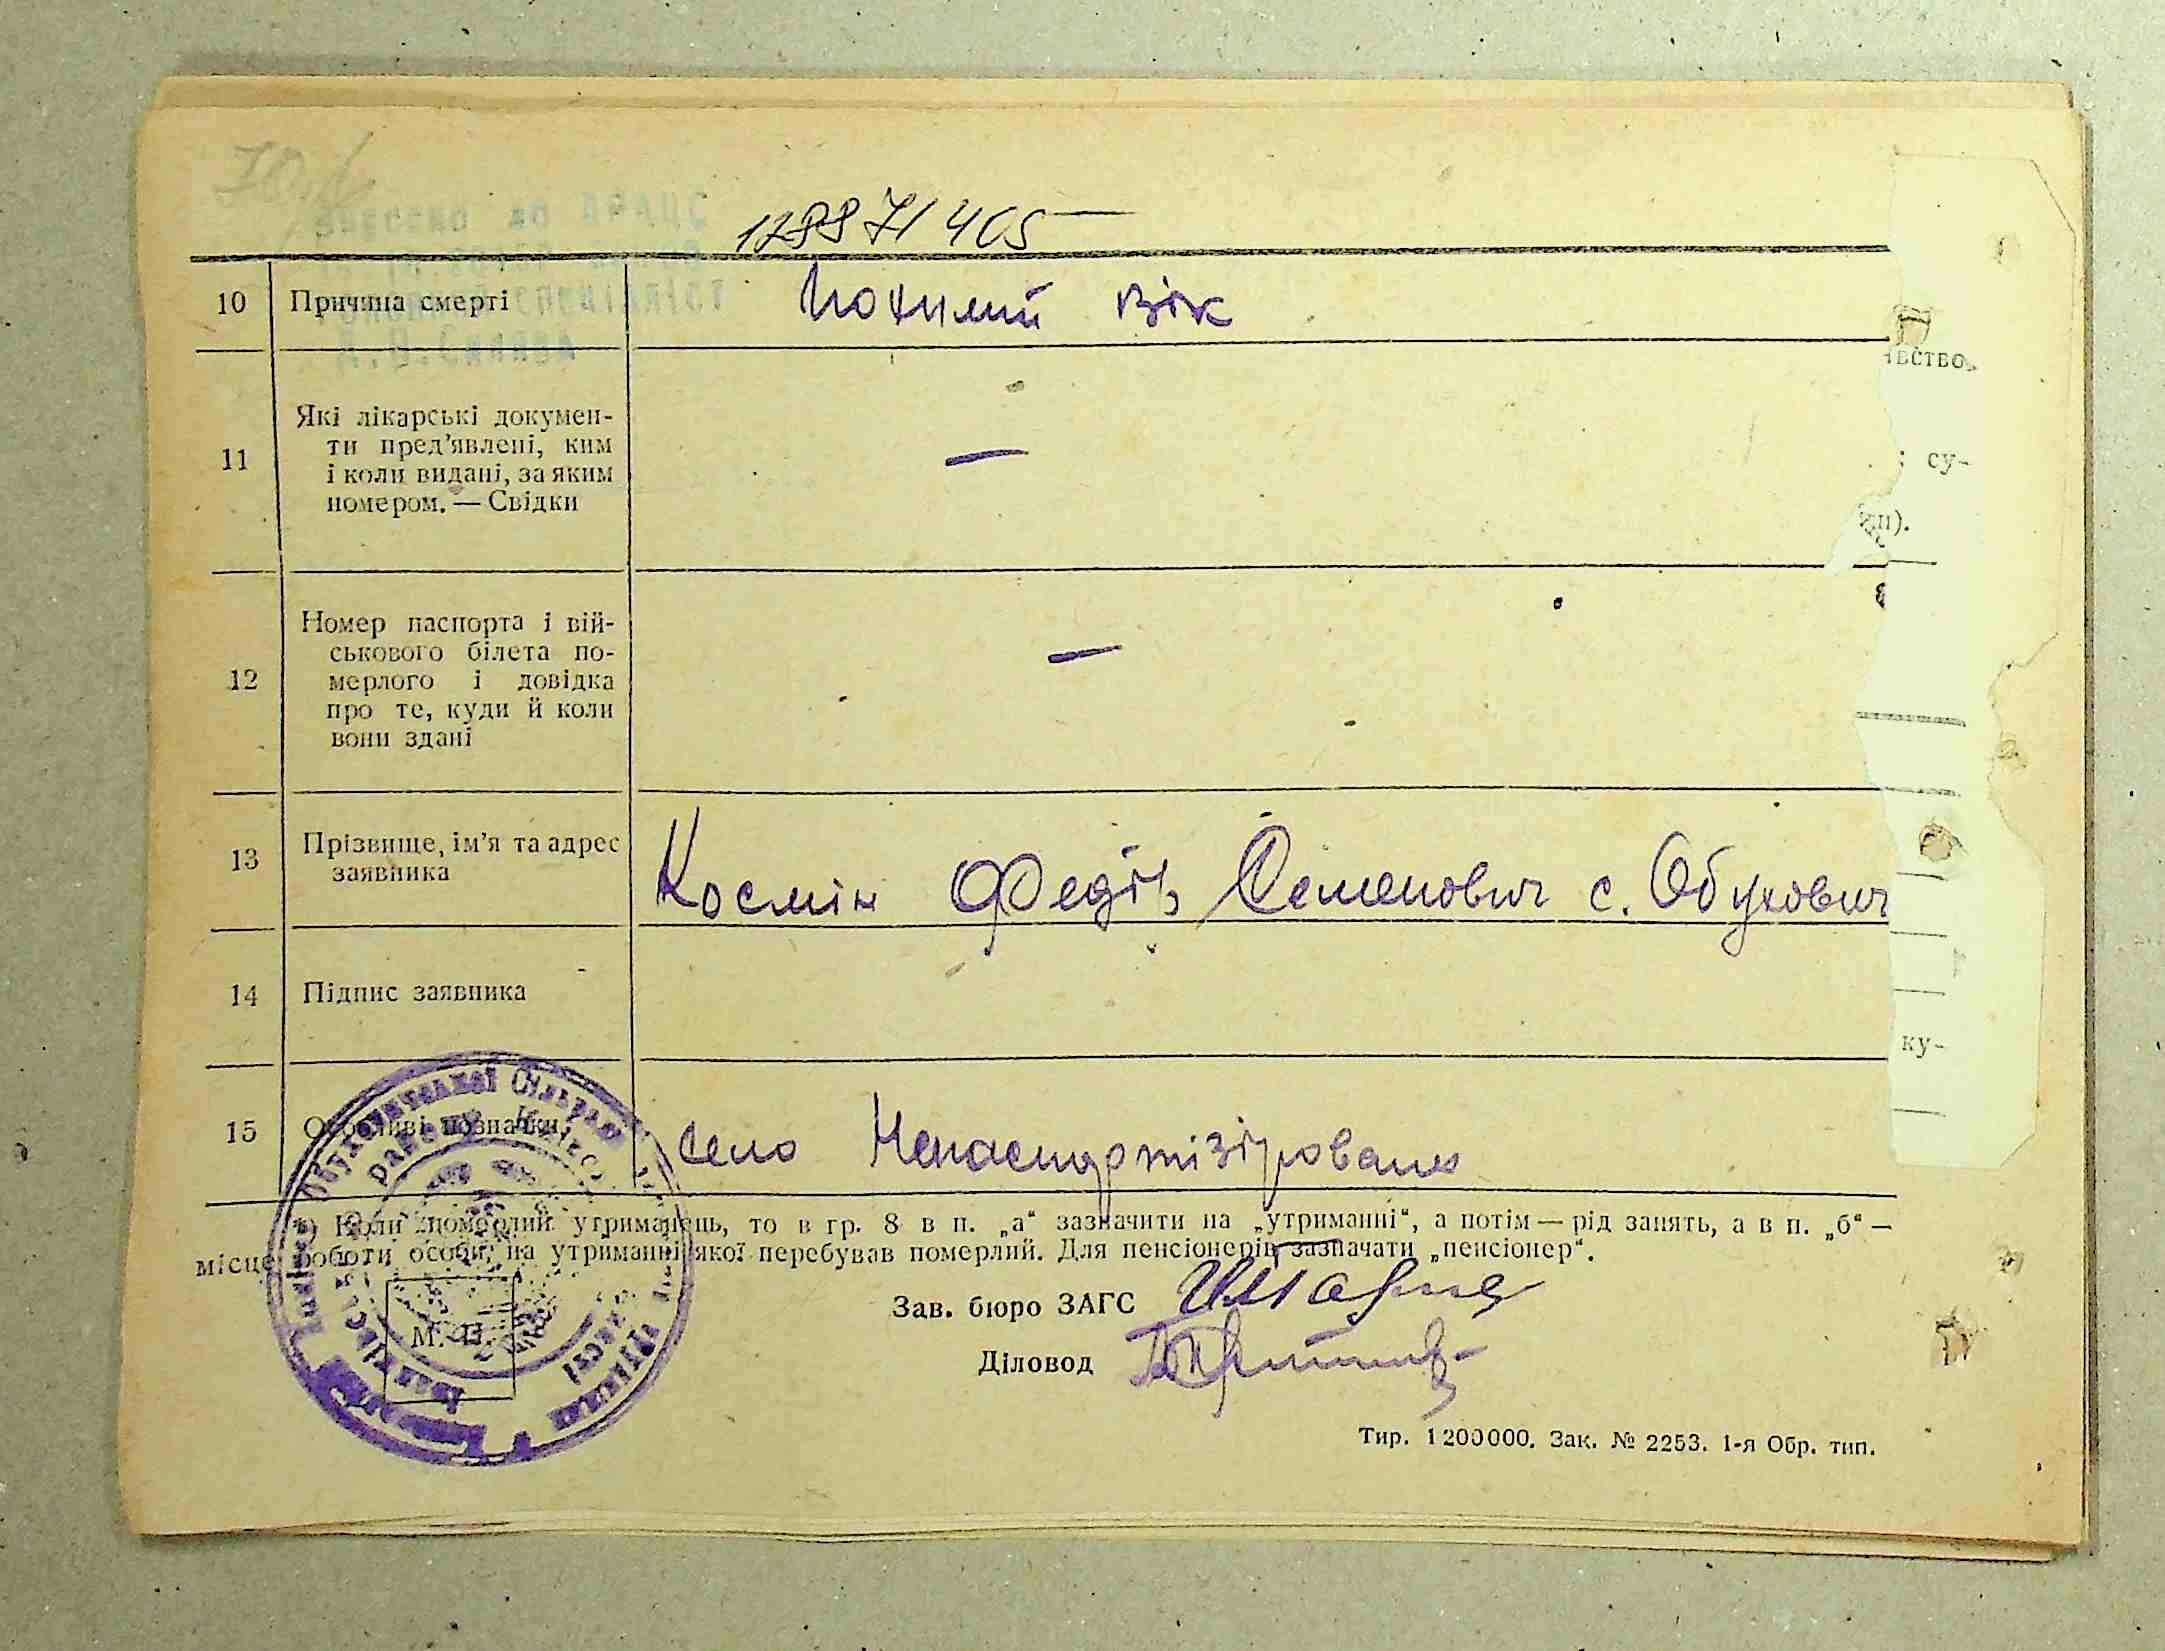 178871405
10 Причина смерті Похилий вік
11 Які лікарські докумен-
ти пред'явлені, ким
і коли видані, за яким
номером. — Свідки —
12 Номер паспорта і вій-
ськового білета по-
мерлого і довідка
про те, куди й коли
вони здані —
13 Прізвище, ім'я та адрес
заявника Космін Федір Семенович с. Обухович
14 Підпис заявника
15 Особливі позначки село Непаспортізіровано
*) Коли померлий утриманець, то в гр. 8 в п. „а“ зазначити на „утриманні“, а потім — рід занять, а в п. „б“ —
місце роботи особи, на утриманні якої перебував померлий. Для пенсіонерів зазначати „пенсіонер“.
Зав. бюро ЗАГС
М. П.
Діловод
Тир. 1200000. Зак. № 2253. 1-я Обр. тип.